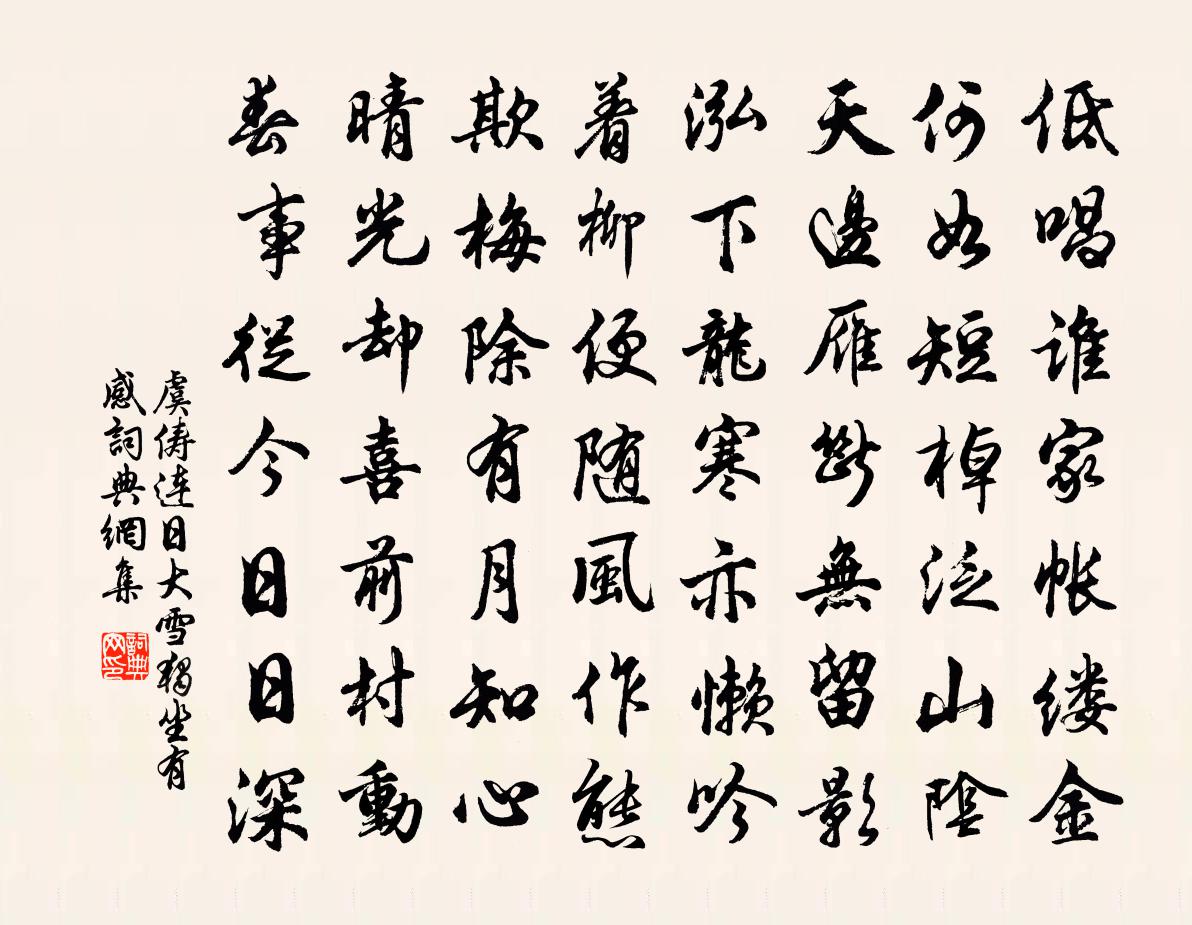 低唱谁家帐缕金
何如短棹泛山陰
天邊雁斷無留影
泓下龍寒亦懒吟
着柳便随風作態
欺梅除有月知心
晴光却喜前村動
春事從今日日深
虞俦連日大雪獨坐有
感詞典網集
詞典网印